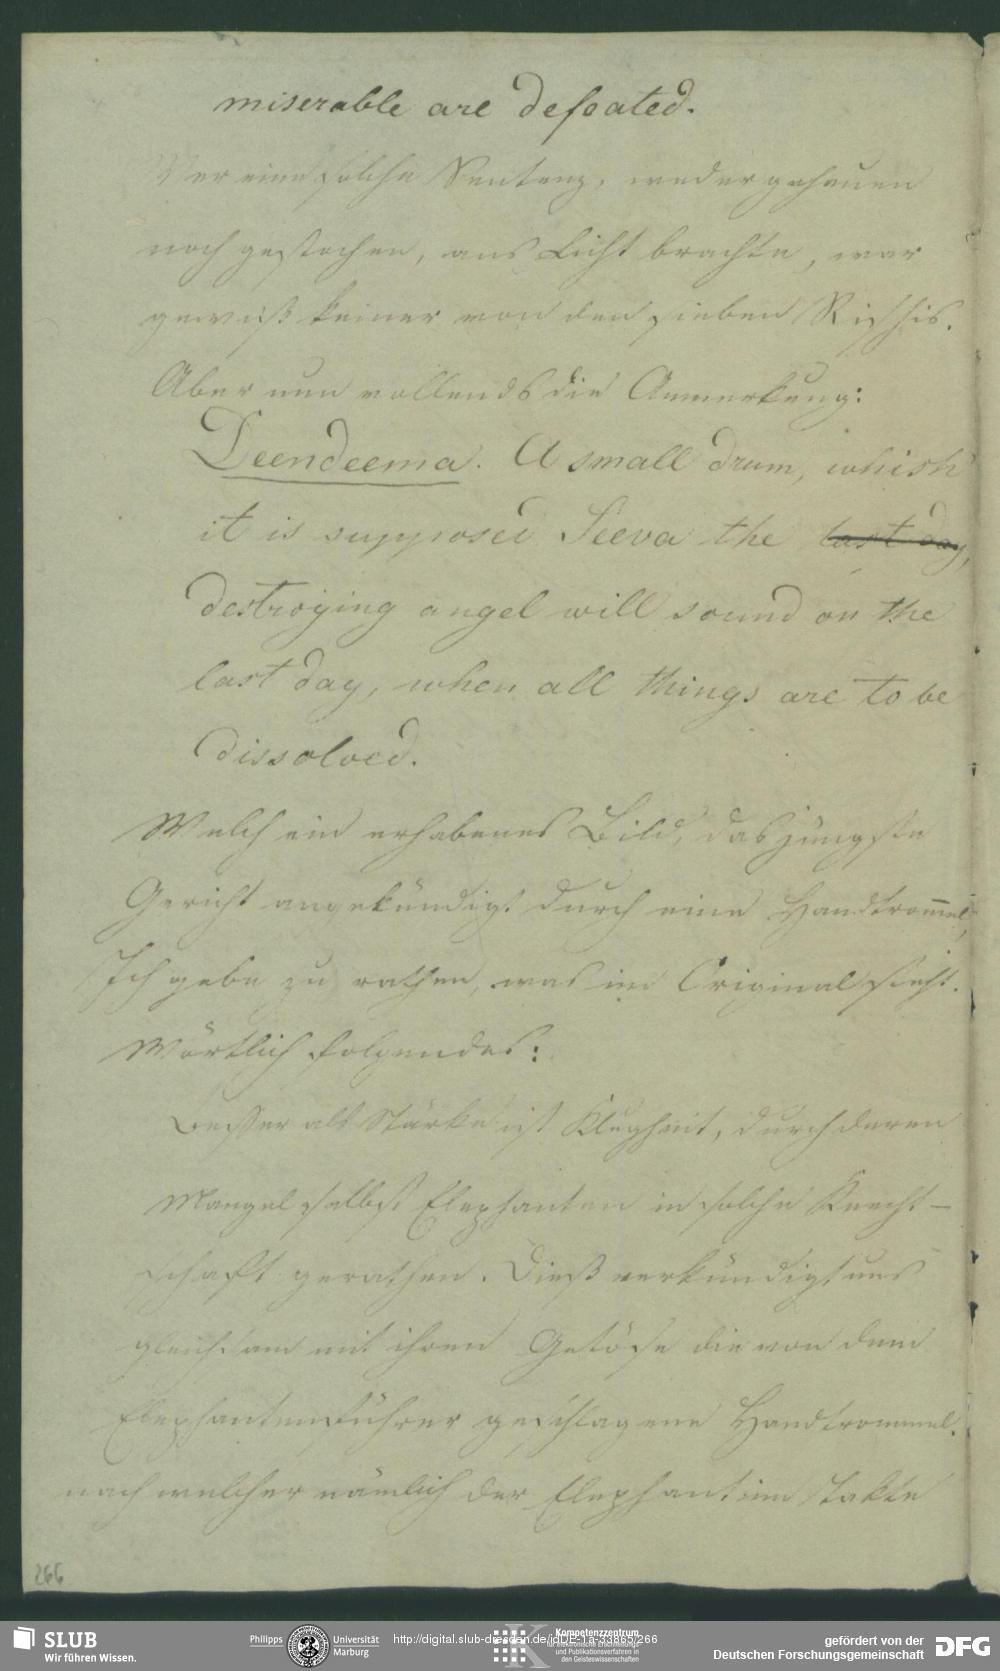 miserable are defeated.
Wer eine solche Sentenz, weder gehauen
noch gestochen, ans Licht brachte, war
gewiß keiner von den sieben Rishis.
Aber nun vollends die Anmerkung:
Deendeema. A small drum, which
it is supposed Seeva the last day,
destroying angel will sound on the
last day, when all things are to be
dissolved.
Welch ein erhabenes Bild, das jüngste
Gericht angekündigt durch eine Handtrom̄el,
Ich gebe zu rathen, was im Original steht.
Wörtlich folgendes:
Besser als Stärke ist Klugheit, durch deren
Mangel selbst Elephanten in solche Knecht-
schaft gerathen. Dieß verkündigt uns
gleichsam mit ihrem Getöse die von dem
Elephantenführer geschlagene Handtrommel.
nach welcher nämlich der Elephant im Takte
266
SLUB
Wir führen Wissen.
Philipps Universität
Marburg
http://digital.slub-dresden.de/idDE-1a-33865/266
Kompetenzzentrum
für elektronische Erschließungs-
und Publikationsverfahren in
den Geisteswissenschaften
gefördert von der
Deutschen Forschungsgemeinschaft
DFG